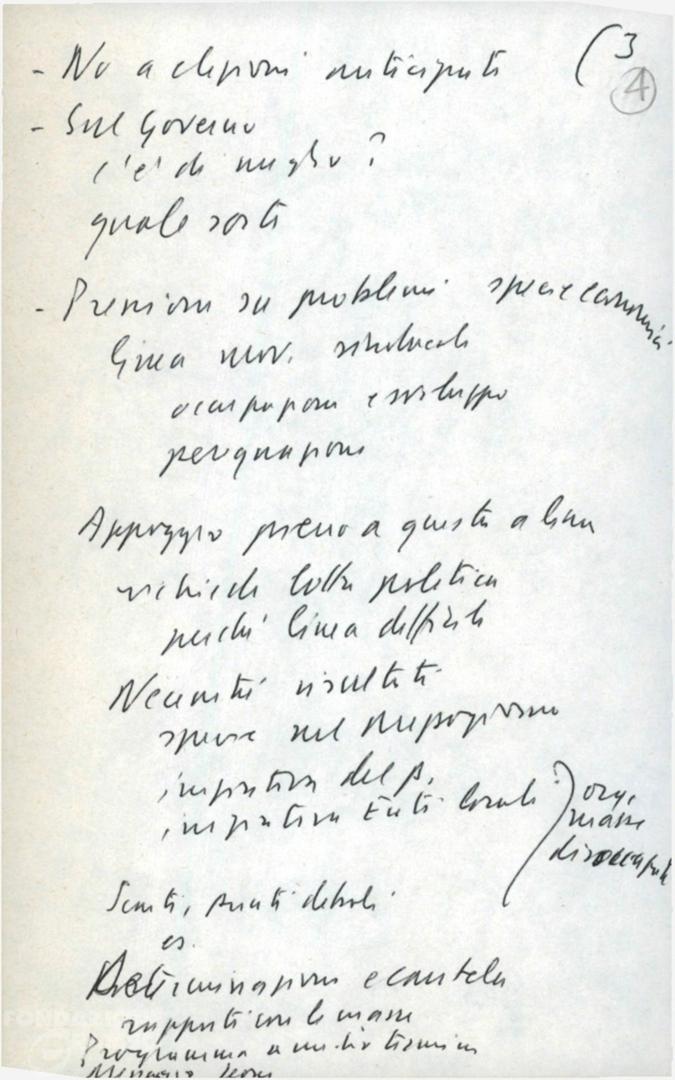 (3
4
- No a elezioni anticipate
- Sul Governo
c'è di meglio?
quale sorti
- Pressioni su problemi specie economici
linea mov. sindacale
occupazione e sviluppo
perequazione
Appoggio pieno a questa linea
richiede lotta politica
perché linea difficile
Necessità risultati
specie nel Mezzogiorno
iniziativa del p.
iniziativa Enti locali
org.
masse
disoccupate
Scontri, punti deboli
es.
Determinazione e cautela
rapporti con le masse
Programma a medio termine
Messaggio Leone
FONDAZIONE